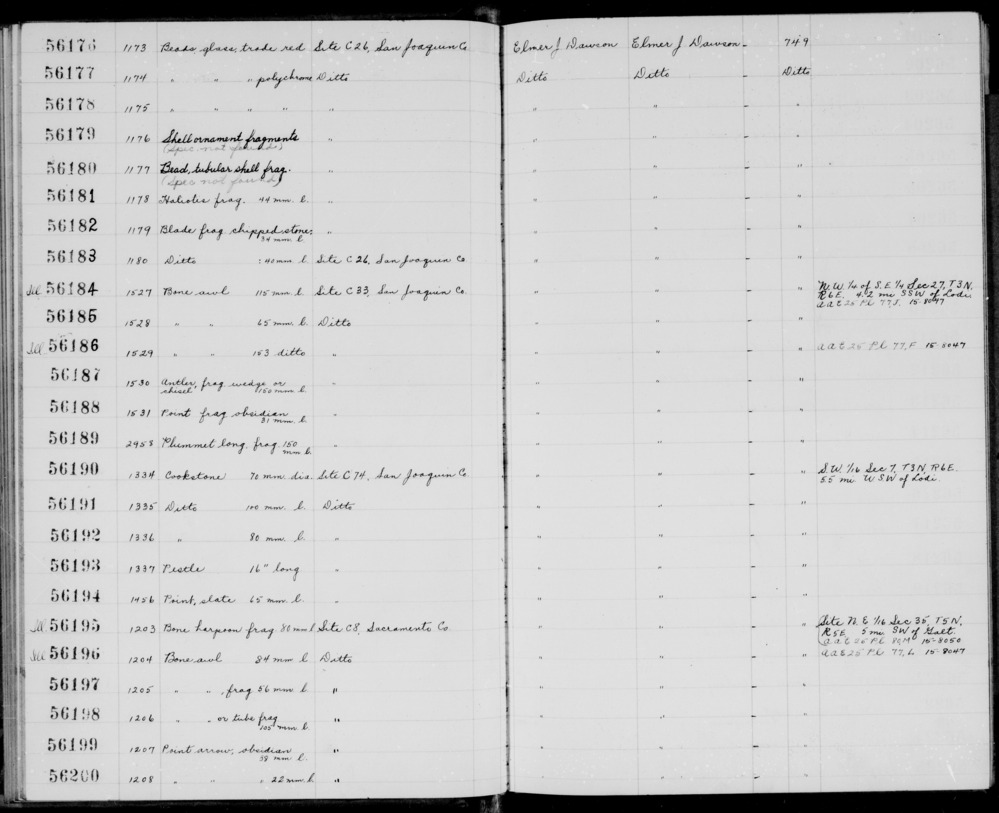 56176 1173 Beads glass, trade red Site C 26, San Joaquin Co. Elmer J Dawson Elmer J Dawson - 749
56177 1174 " " " polychrome Ditto Ditto Ditto - Ditto
56178 1175 " " " " " " " - "
56179 1176 Shell ornament fragments " " " - "
(Spec. not found)
56180 1177 Bead, tubular shell frag. " " " - "
(Spec not found)
56181 1178 Haliotis frag. 44 mm. l. " " " - "
56182 1179 Blade frag chipped stone: " " " - "
34 mm. l.
56183 1180 Ditto : 40 mm. l. Site C 26, San Joaquin Co. " " - "
Ill 56184 1527 Bone awl 115 mm. l. Site C 33, San Joaquin Co. " " - " N.W. 1/4 of S.E. 1/4 Sec 27, T3N,
R6E. 4.2 mi SSW of Lodi.
AAE 25 Pl 77, J. 15-8047
56185 1528 " " 65 mm. l. Ditto " " - "
Ill 56186 1529 " " 153 ditto " " " - " AAE 25 Pl 77, F 15-8047
56187 1530 Antler, frag wedge or " " " - "
chisel 150 mm. l.
56188 1531 Point frag obsidian " " " - "
31 mm. l.
56189 2958 Plummet long. frag 150 " " " - "
mm. l.
56190 1334 Cookstone 70 mm. dia. Site C 74, San Joaquin Co. " " - " S.W. 1/16 Sec 7, T3N, R6E.
5.5 mi WSW of Lodi.
56191 1335 Ditto 100 mm. l. Ditto " " - "
56192 1336 " 80 mm. l. " " " - "
56193 1337 Pestle 16" long " " " - "
56194 1456 Point, slate 65 mm. l. " " " - "
Ill 56195 1203 Bone harpoon frag. 80 mm l Site C 8, Sacramento Co. " " - " Site N.E 1/16 Sec 35, T5N,
R5E. 5 mi SW of Galt.
AAE 25 Pl 80, M 15-8050
Ill 56196 1204 Bone awl 84 mm l. Ditto " " - " AAE 25 Pl 77, L 15-8047
56197 1205 " ", frag 56 mm. l. " " " - "
56198 1206 " " or tube frag " " " - "
105 mm. l.
56199 1207 Point arrow, obsidian " " " - "
38 mm l.
56200 1208 " " " 22 mm. l. " " " - "